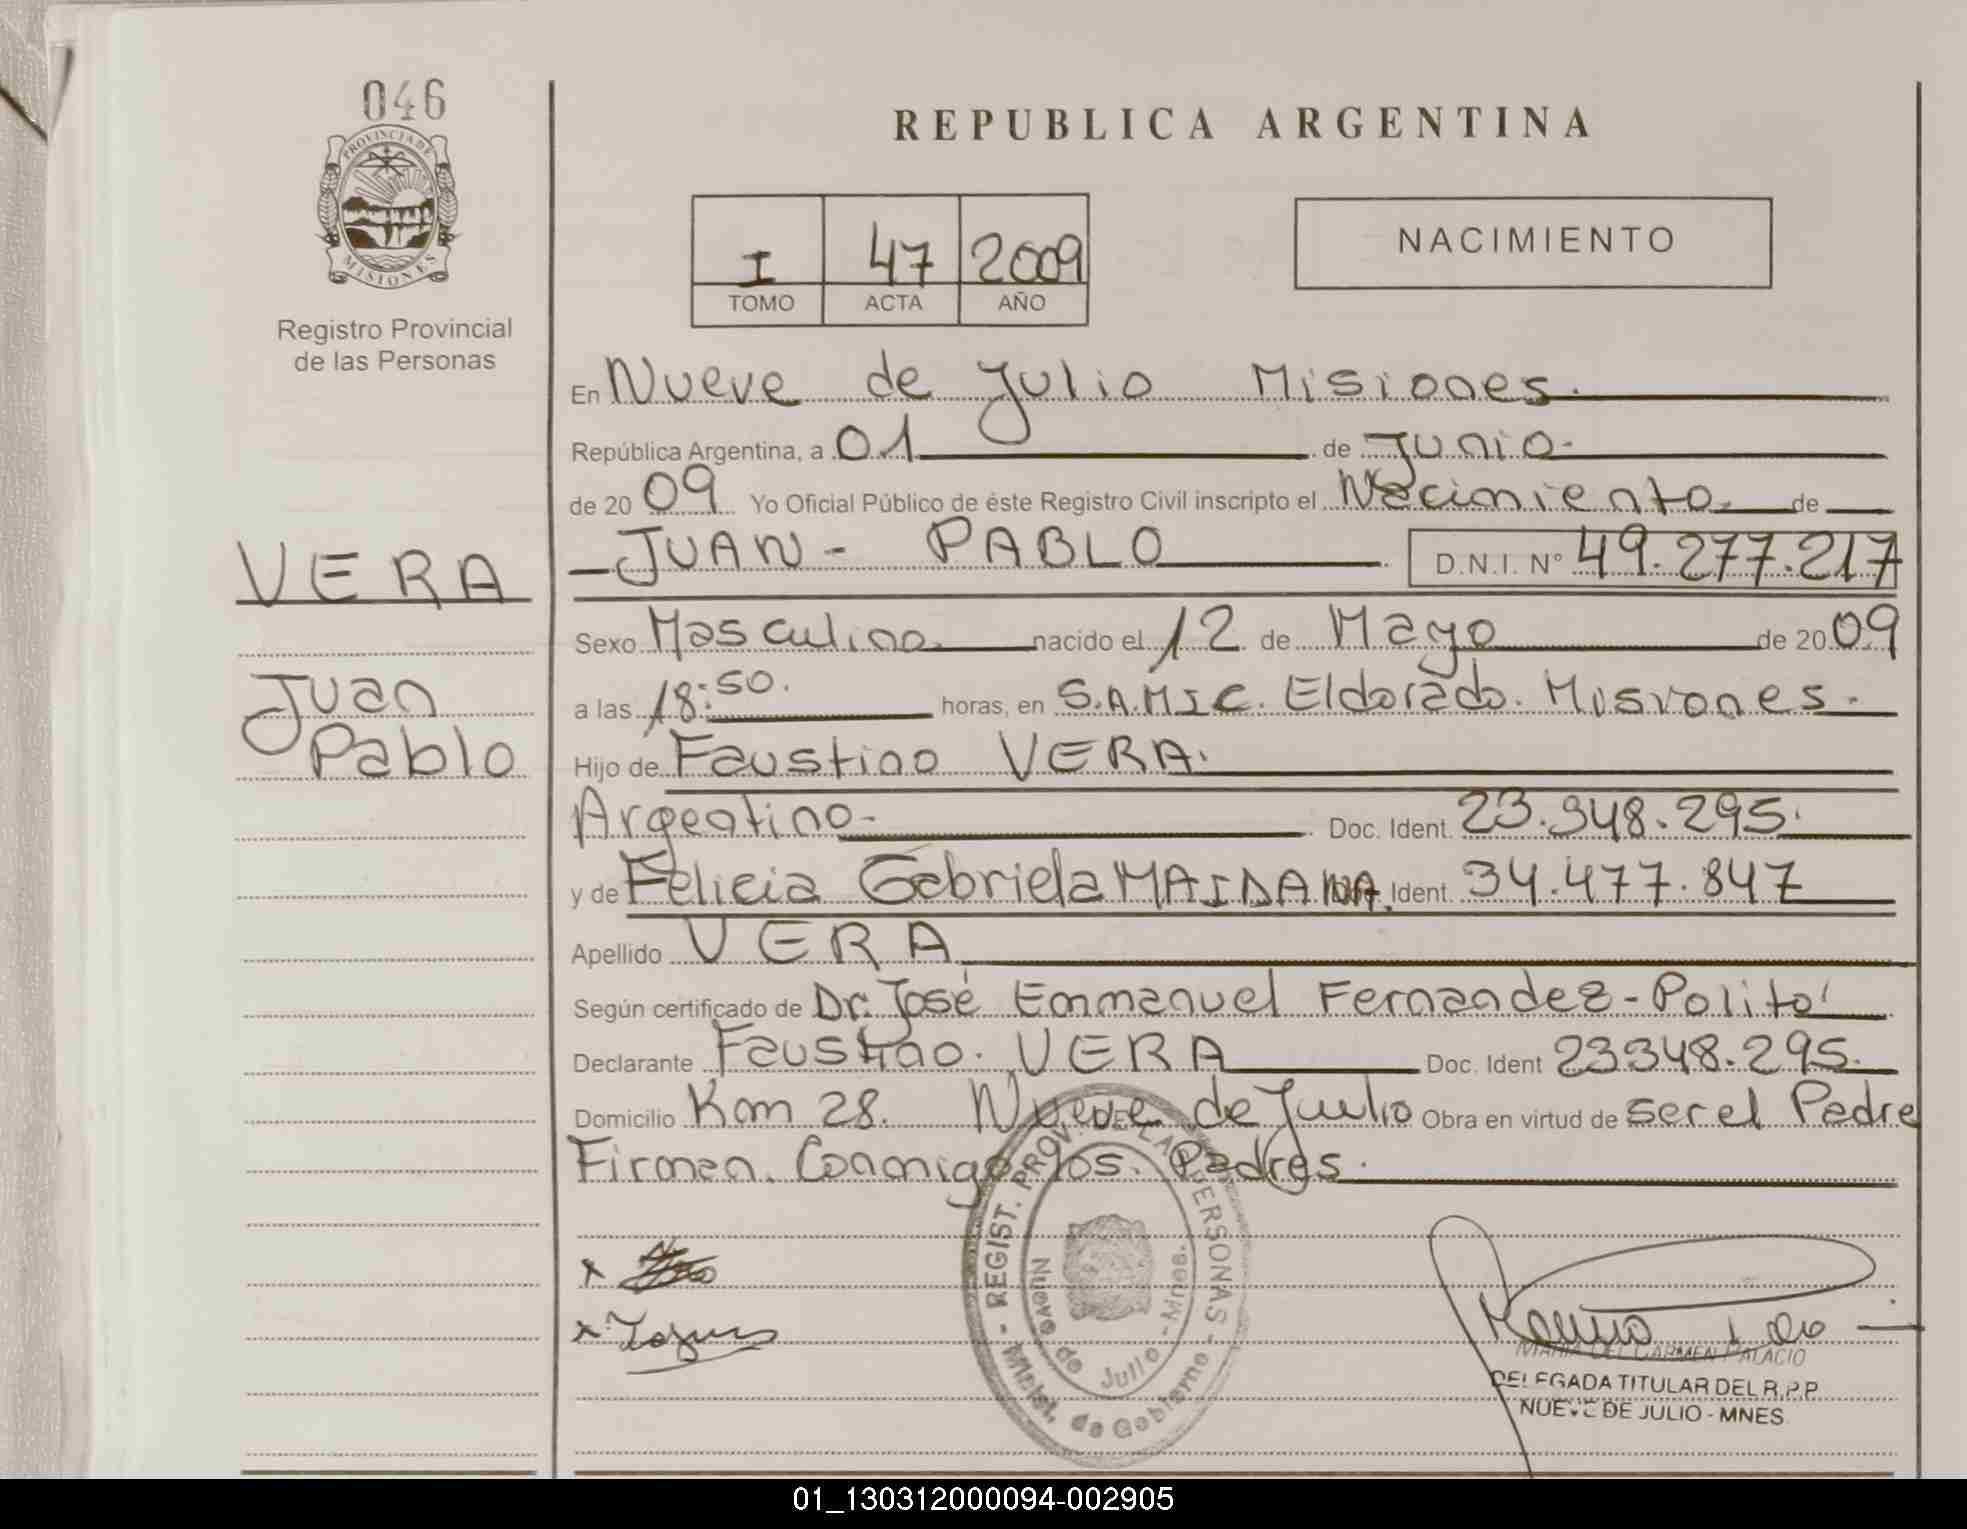 046
PROVINCIA DE
MISIONES
Registro Provincial
de las Personas
VERA
Juan
Pablo
REPUBLICA ARGENTINA
I 47 2009
TOMO ACTA AÑO
NACIMIENTO
En Nueve de Julio Misiones.
República Argentina, a 01 de Junio-
de 20 09 Yo Oficial Público de éste Registro Civil inscripto el Nacimiento de
JUAN - PABLO D.N.I. Nº 49.277.217
Sexo Masculino nacido el 12 de Mayo de 20 09
a las 18:50. horas, en S.A.M.I.C. Eldorado. Misiones.
Hijo de Faustino VERA.
Argentino- Doc. Ident. 23.348.295.
y de Felicia Gabriela MAIDANA. Ident. 34.477.847
Apellido VERA
Según certificado de Dr. José Emmanuel Fernandez-Polito
Declarante Faustino. VERA Doc. Ident 23348.295.
Domicilio Km 28. Nueve de Julio Obra en virtud de ser el Padre
Firman. Conmigo los. Padres.
- REGIST. PROV. DE LAS PERSONAS -
Minist. de Gobierno
Nueve de Julio - Mnes.
x
x
MARIA DEL CARMEN PALACIO
DELEGADA TITULAR DEL R.P.P
NUEVE DE JULIO - MNES
01_130312000094-002905